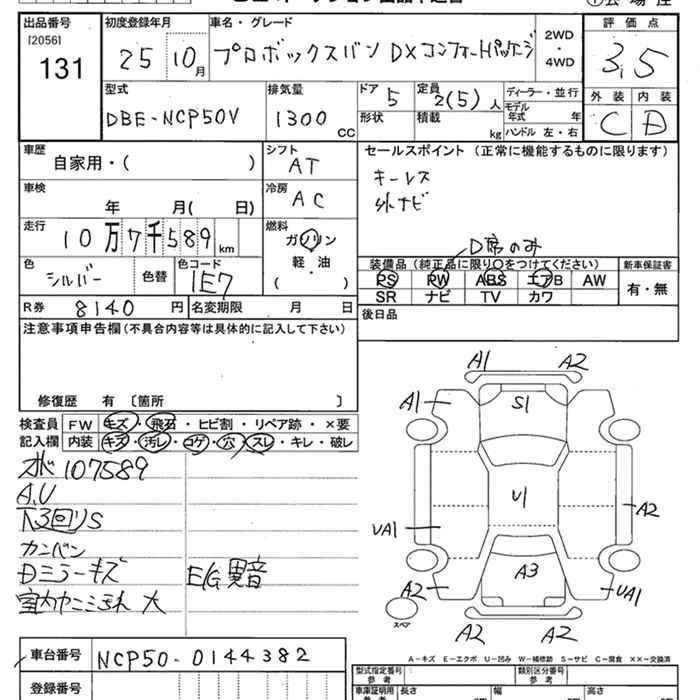 出品番号
[2056]
131
初度登録年月
25 10月
車名・グレード
プロボックスバン DXコンフォートパッケージ
2WD
・
4WD
評価点
3.5
外装 内装
C D
型式
DBE-NCP50V
排気量
1300 CC
ドア 5
定員 2(5)人
形状
積載 kg
ディーラー・並行
モデル年式 年
ハンドル 左・右
車歴
自家用・( )
シフト
AT
セールスポイント (正常に機能するものに限ります)
キーレス
外ナビ
車検
年 月( 日)
冷房
AC
走行
10万7千589 km
燃料
ガソリン
軽・油
( )
D席のみ
色
シルバー
色替
色コード
1E7
装備品 (純正品に限り○をつけてください)
PS PW ABS エアB AW
SR ナビ TV カワ
新車保証書
有・無
R券 8140 円
名変期限 月 日
後日品
注意事項申告欄(不具合内容等は具体的に記入して下さい)
修復歴 有 〔箇所 〕
検査員記入欄
FW キズ・飛石・ヒビ割・リペア跡・×要
内装 キズ・汚レ・コゲ・穴・スレ・キレ・破レ
水 107589
A.U
下3回りS
カンバン
Dミラーキズ
E/G異音
A1 A2
A1
S1
U1
A2
UA1
A3
A2
UA1
スペア
A2 A2
A-キズ E-エクボ U-凹み W-補修跡 S-サビ C-腐食 XX-交換済
車台番号
NCP50-0144382
登録番号
型式指定番号
類別区分番号
車庫証明用
長さ 幅 高さ